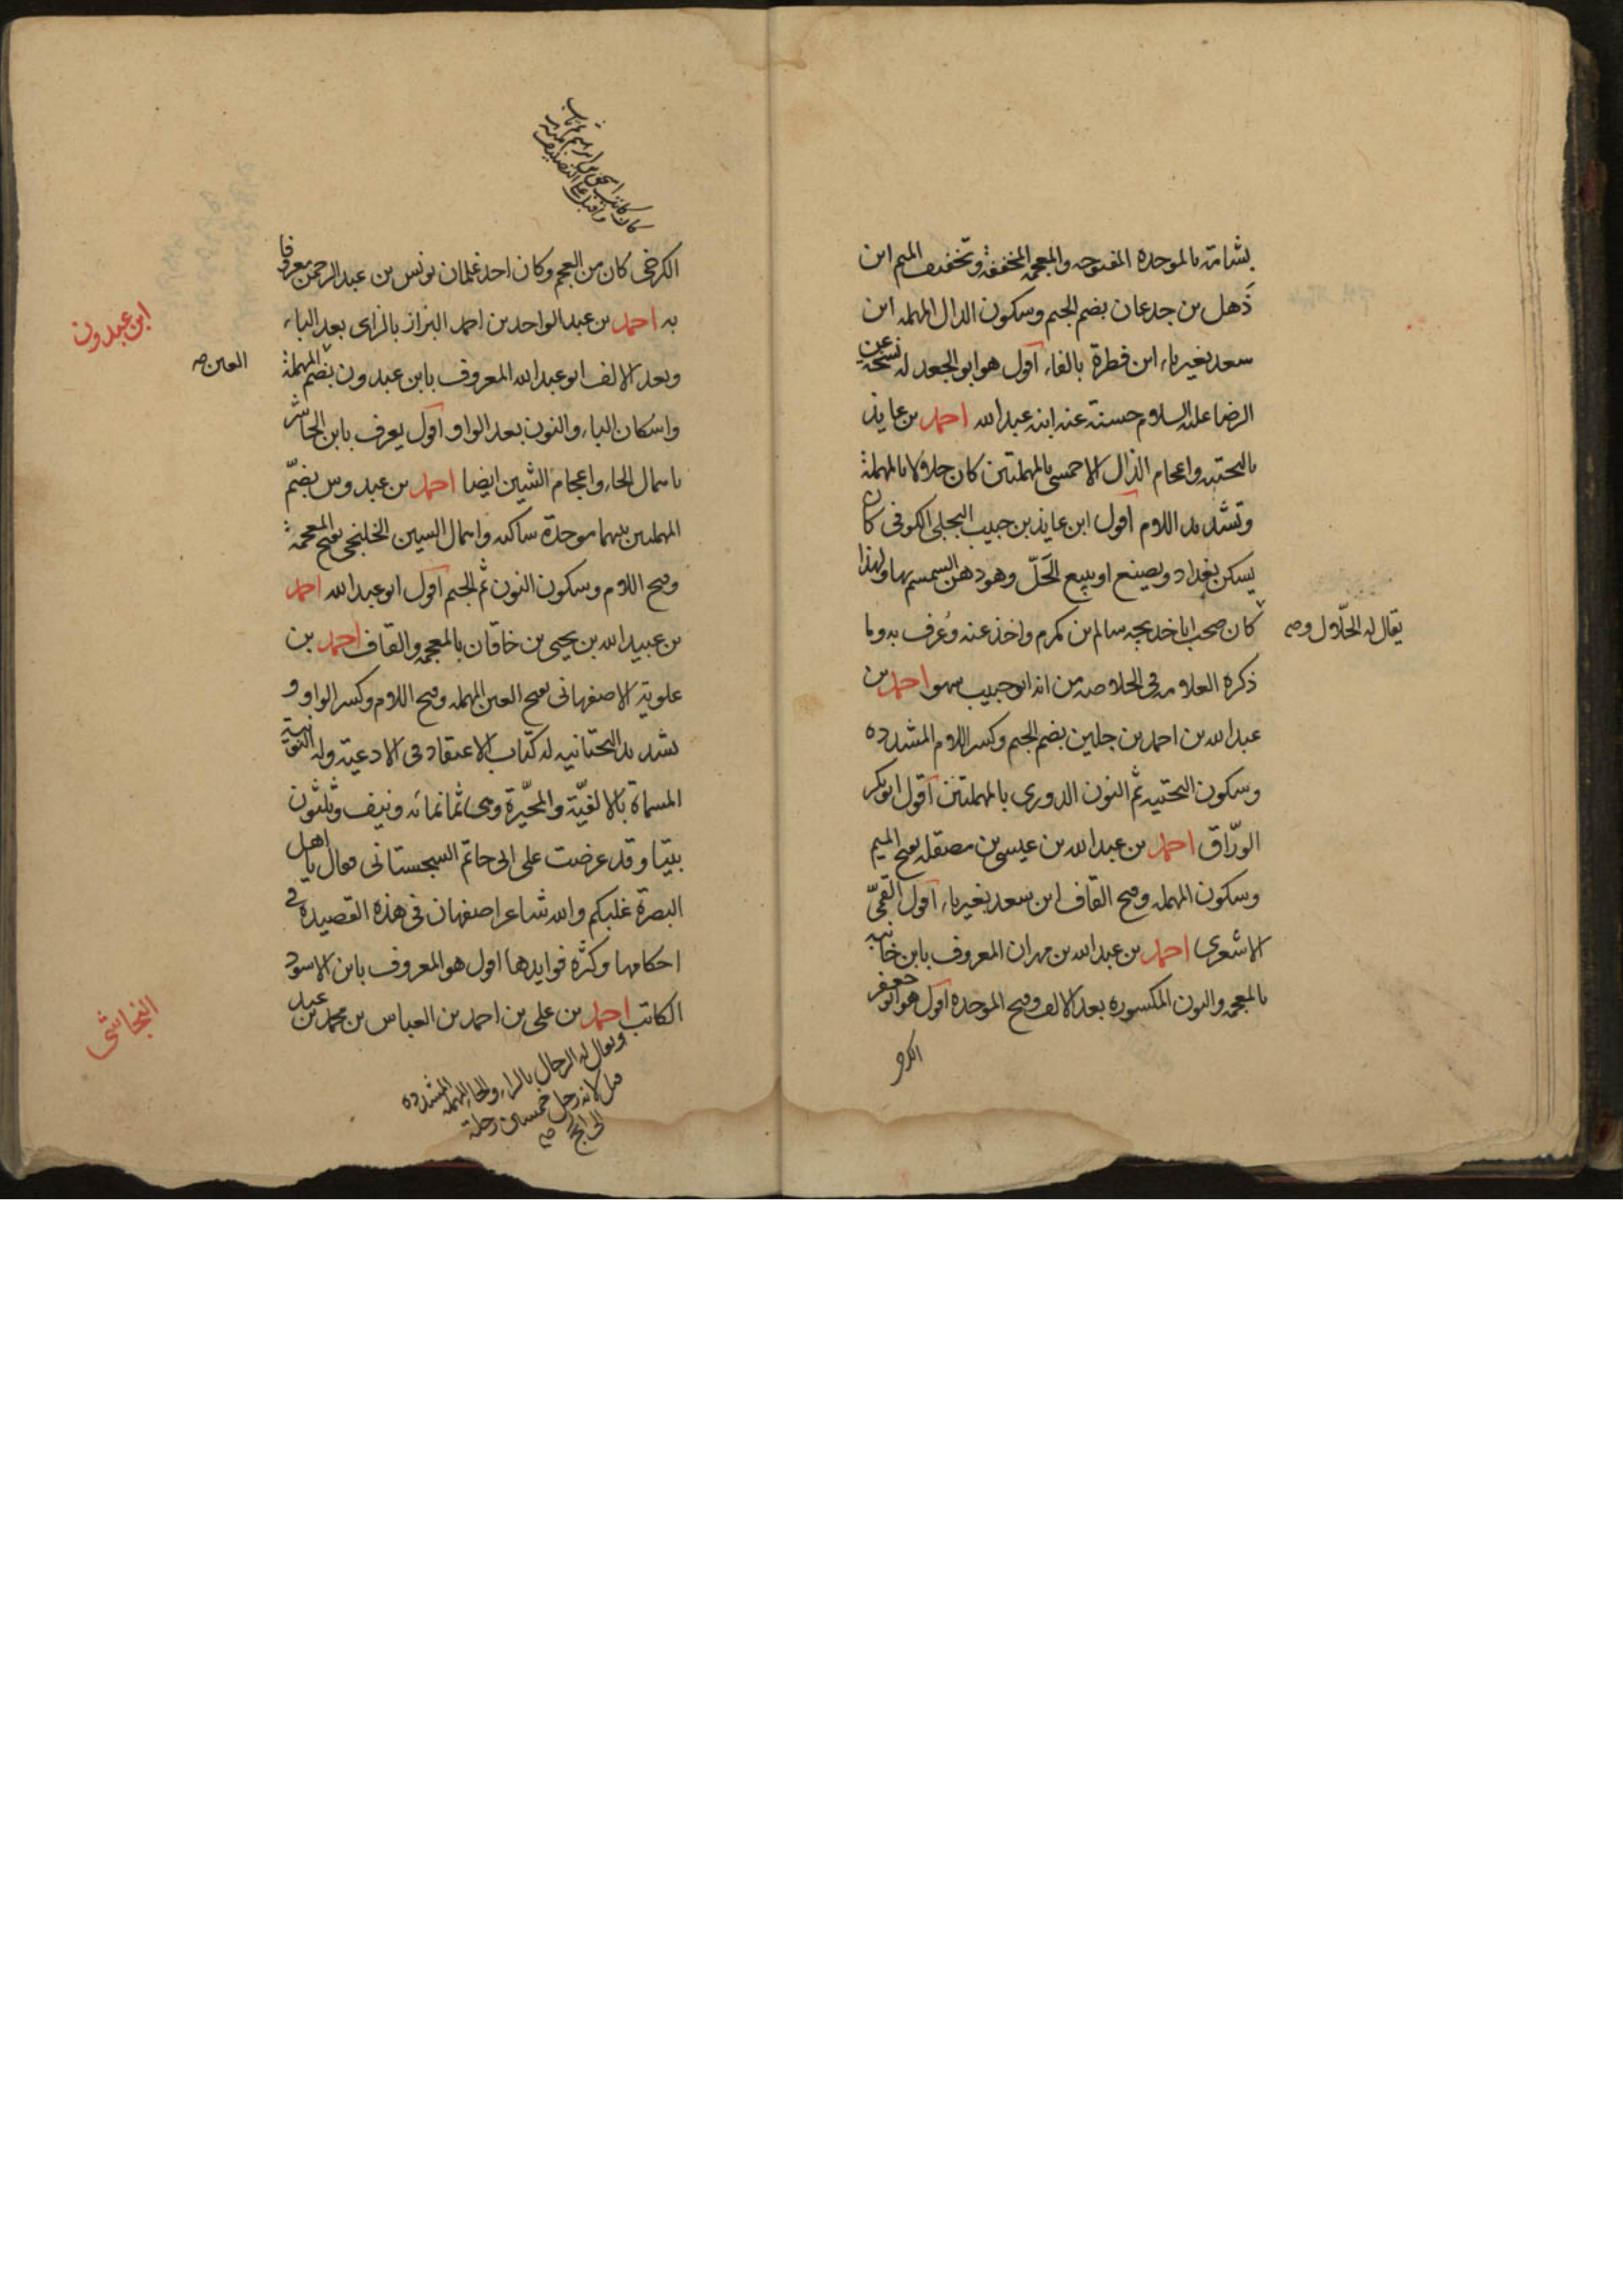 بشامة بالموحدة المفتوحه والمعجمه المخففة وتخفيف الميم ابن
ذهل بن جدعان بضم الجيم وسكون الدال المهمله ابن
سعد بغير ياء ابن فطرة بالفاء اقول هو ابو الجعد له نسخة عن
الرضا عليه السلام حسنة عنه ابنه عبد الله احمد بن عايذ
بالتحتيه واعجام الذال الاحمسي بالمهملتين كان حلاولا بالمهملة
وتشديد اللام اقول ابن عايذ بن حبيب البجلي الكوفي كان
يسكن بغداد ويصنع او يبيع الحَلّ وهو دهن السمسم بها ولهذا
يقال له الحلّال وصه
كان صحب ابا خديجه سالم بن مكرم واخذ عنه وعُرف به وما
ذكره العلامه في الخلاصه من انه ابو حبيب سهو احمد بن
عبد الله بن احمد بن جلين بضم الجيم وكسر اللام المشدده
وسكون التحتيه ثم النون الدوري بالمهملتين اقول ابو بكر
الورّاق احمد بن عبد الله بن عيسى بن مصقله بفتح الميم
وسكون المهمله وفتح القاف ابن سعد بغير ياء اقول القمّي
الاشعري احمد بن عبد الله بن مهران المعروف بابن خانبه
بالمعجمه والنون المكسوره بعد الالف وفتح الموحده اقول هو ابو جعفر
الكرخي
كان من العجم وكان احد غلمان يونس بن عبد الرحمن معروفا
به احمد بن عبد الواحد بن احمد البزاز بالزاى بعد الباء
ابن عبدون
وبعد الالف ابو عبد الله المعروف بابن عبدون بضم المهملة
العين صه
واسكان الباء والنون بعد الواو اقول يعرف بابن الحاشر
باهمال الحاء واعجام الشين ايضا احمد بن عبدوس بضمّ
المهملتين بينهما موحدة ساكنه واهمال السين الخلنجي بفتح المعجمة
وفتح اللام وسكون النون ثم الجيم اقول ابو عبد الله احمد
بن عبيد الله بن يحيى بن خاقان بالمعجمه والقاف احمد بن
علوية الاصفهاني بفتح العين المهمله وفتح اللام وكسر الواو و
تشديد التحتانيه له كتاب الاعتقاد في الادعية وله النونية
المسماة بالالفيّة والمحبّرة وهي ثمانمائه ونيف وثلثون
بيتا وقد عرضت على ابي حاتم السجستاني فقال يا اهل
البصرة غلبكم والله شاعر اصفهان في هذه القصيدة في
احكامها وكثره فوايدها اقول هو المعروف بابن الاسود
الكاتب احمد بن علي بن احمد بن العباس بن محمد بن عبد
النجاشي
ويقال له الرحال بالراء والحاء المهمله المشدده
قيل لانه رحل خمسين رحلة
الى الحج صه